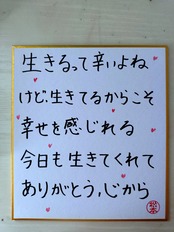 生きるって辛いよね
けど、生きてるからこそ
幸せを感じれる
今日も生きてくれて
ありがとう,心から